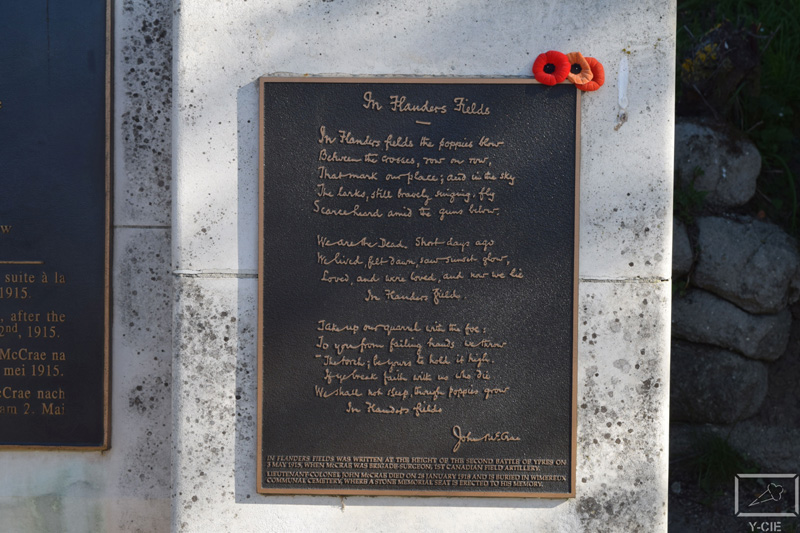 w
suite à la
1915.
, after the
2nd, 1915.
McCrae na
mei 1915.
cCrae nach
am 2. Mai
In Flanders Fields
In Flanders fields the poppies blow
Between the crosses, row on row,
That mark our place; and in the sky
The larks, still bravely singing, fly
Scarce heard amid the guns below.
We are the Dead. Short days ago
We lived, felt dawn, saw sunset glow,
Loved, and were loved, and now we lie
In Flanders fields.
Take up our quarrel with the foe:
To you from failing hands we throw
The torch; be yours to hold it high.
If ye break faith with us who die
We shall not sleep, though poppies grow
In Flanders fields
John McCrae
IN FLANDERS FIELDS WAS WRITTEN AT THE HEIGHT OF THE SECOND BATTLE OF YPRES ON
3 MAY 1915, WHEN McCRAE WAS BRIGADE-SURGEON, 1ST CANADIAN FIELD ARTILLERY.
LIEUTENANT-COLONEL JOHN McCRAE DIED ON 28 JANUARY 1918 AND IS BURIED IN WIMEREUX
COMMUNAL CEMETERY, WHERE A STONE MEMORIAL SEAT IS ERECTED TO HIS MEMORY.
Y-CIE